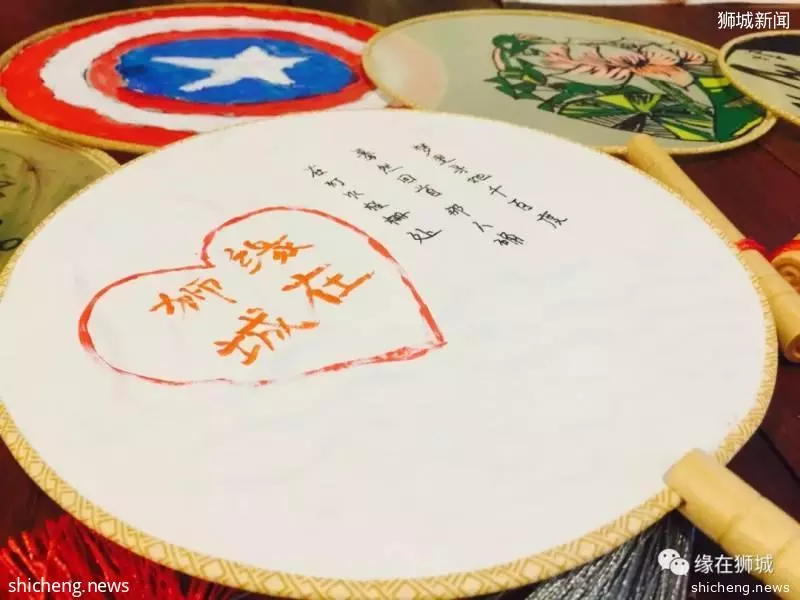 狮城新闻
众里寻他千百度
蓦然回首那人却
在灯火阑珊处
缘在
狮城
缘在狮城
shicheng.news
shicheng.news